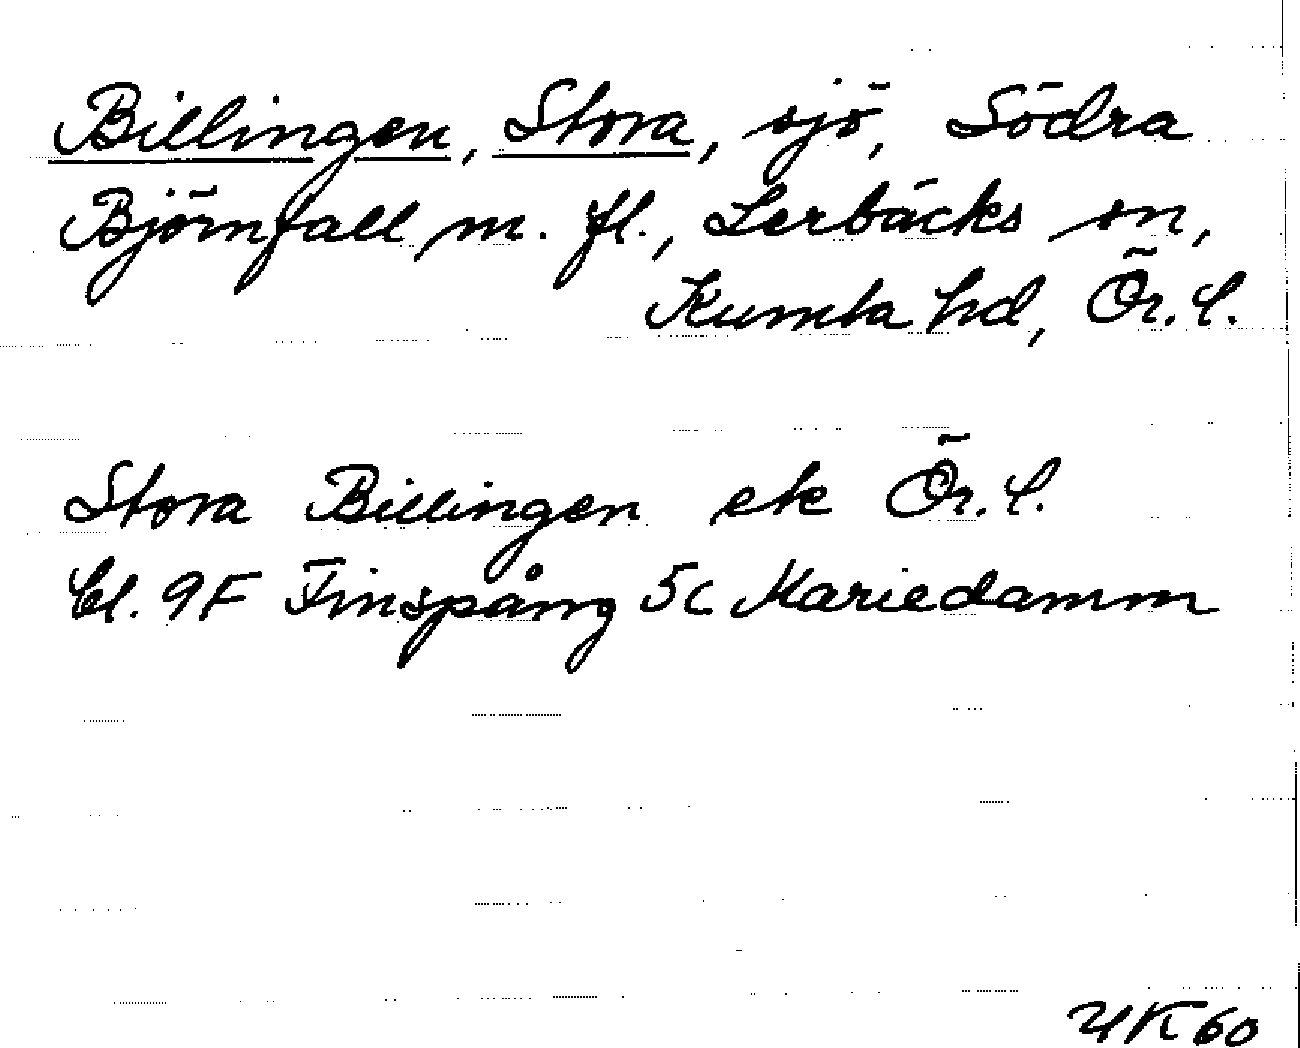 Billingen, Stora, sjö, Södra
Björnfall m. fl., Lerbäcks sn,
Kumla hd, Ör. l.
Stora Billingen ek Ör. l.
Bl. 9F Finspång 5c Mariedamm
UK 60